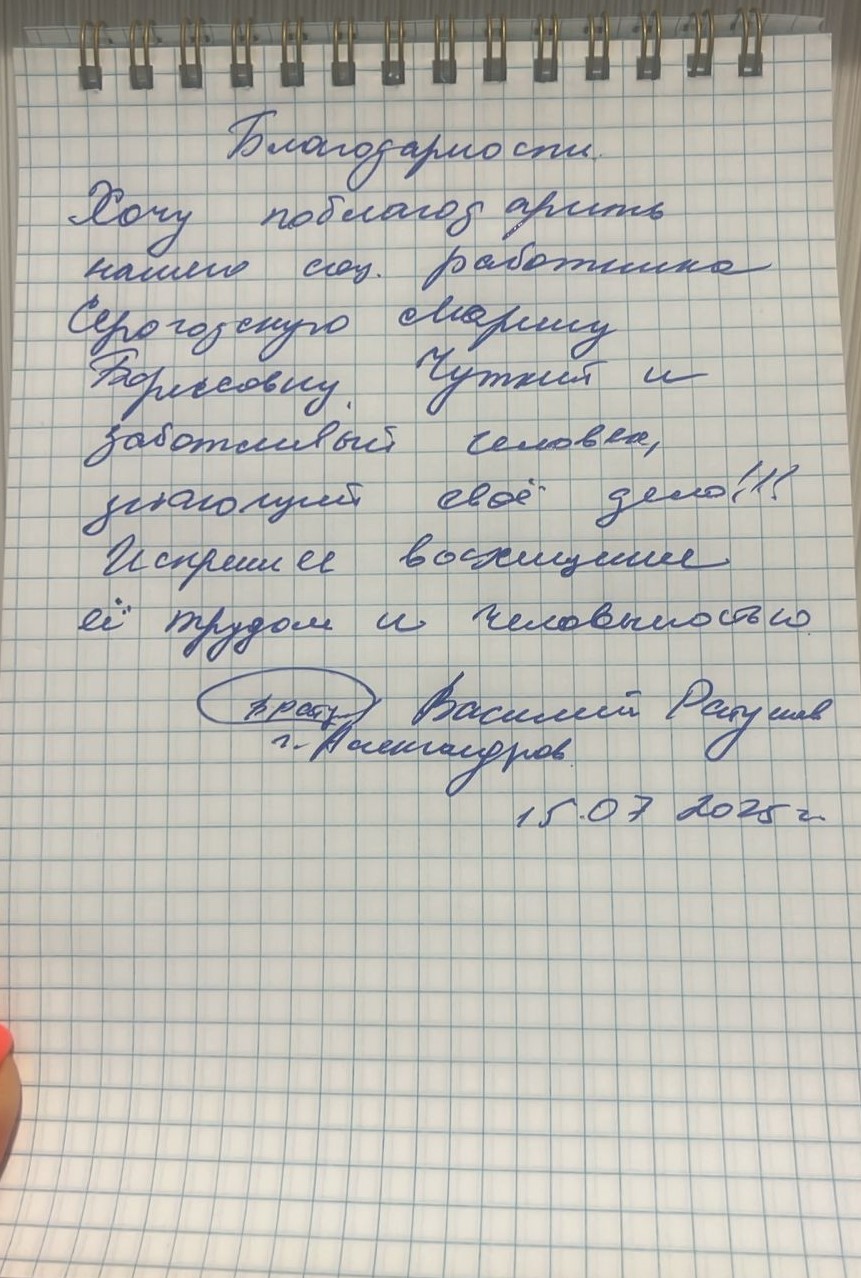 Благодарности.
Хочу поблагодарить
нашего соц. работника
Серогодскую Марину
Борисовну. Чуткий и
заботливый человек,
знающий своё дело!!!
Искреннее восхищение
её трудом и человечностью
Василий Ратушев
г. Александров.
15.07 2025 г.